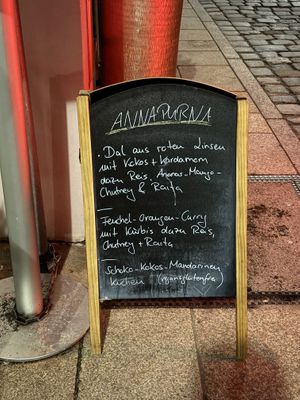 ANNAPURNA
• Dal aus roten Linsen
mit Kokos + Kardamom
dazu Reis, Ananas-Mango-
Chutney & Raita
—
Fenchel-Orangen-Curry
mit Kürbis dazu Reis,
Chutney + Raita
—
Schoko-Kokos-Mandarinen
Kuchen (vegan+glutenfrei)